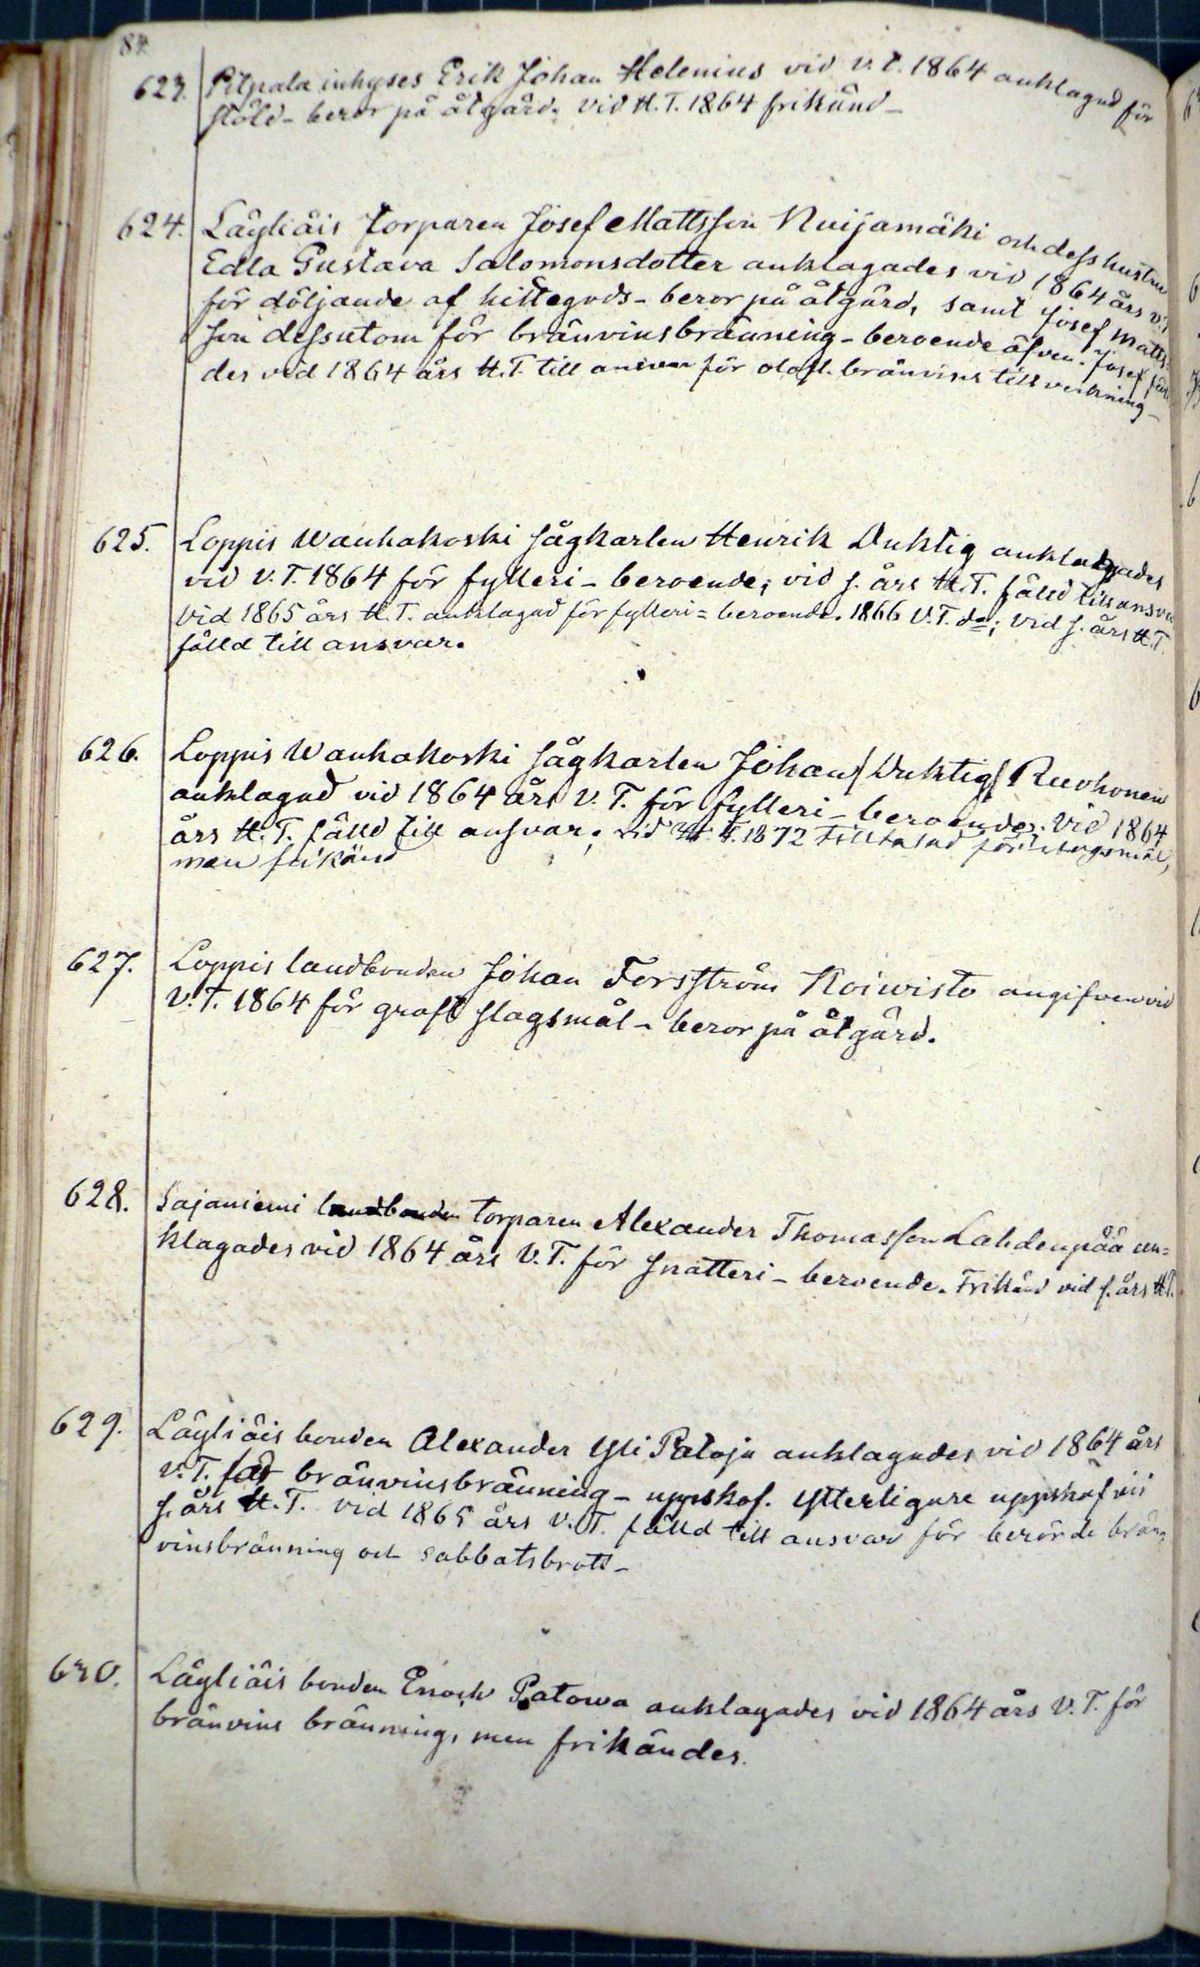 84.
623. Pilpala inhyses Erik Johan Helenius vid V.T. 1864 anklagad för
stöld - beror på åtgärd; vid H.T. 1864 frikänd -
624. Läyliäis torparen Josef Mattsson Nuijamäki och dess hustru
Edla Gustava Salomonsdotter anklagades vid 1864 års V.T.
för döljande af hittegods - beror på åtgärd, samt Josef Matts-
son dessutom för bränvinsbränning - beroende äfven. Josef fäl
des vid 1864 års H.T. till ansvar för olofl. bränvins tillverkning -
625. Loppis Wanhakoski sågkarlen Henrik Duktig anklagades
vid V.T. 1864 för fylleri - beroende; vid s. års H.T. fälld till ansvar
Vid 1865 års H.T. anklagad för fylleri = beroende. 1866 V.T. do; vid s. års H.T.
fälld till ansvar.
626. Loppis Wanhakoski sågkarlen Johan /Duktig/ Ruohonen
anklagad vid 1864 års V.T. för fylleri - beroende; Vid 1864
års H.T. fälld till ansvar; vid H.T. 1872 tilltalad för slagsmål,
men frikänd
627. Loppis landbonden Johan Forsström Koiwisto angifven vid
V.T. 1864 för groft slagsmål - beror på åtgärd.
628. Sajaniemi landbonden torparen Alexander Thomasson Lahdenpää an=
klagades vid 1864 års V.T. för snatteri - beroende. Frikänd vid s. års H.T.
629. Läyliäis bonden Alexander Yli Patoja anklagades vid 1864 års
V.T. för bränvinsbränning - uppskof. Ytterligare uppskof vid
s. års H.T. vid 1865 års V.T. fälld till ansvar för berörde brän=
vinsbränning och sabbatsbrott -
630. Läyliäis bonden Enoch Patowa anklagades vid 1864 års V.T. för
bränvins bränning, men frikändes.